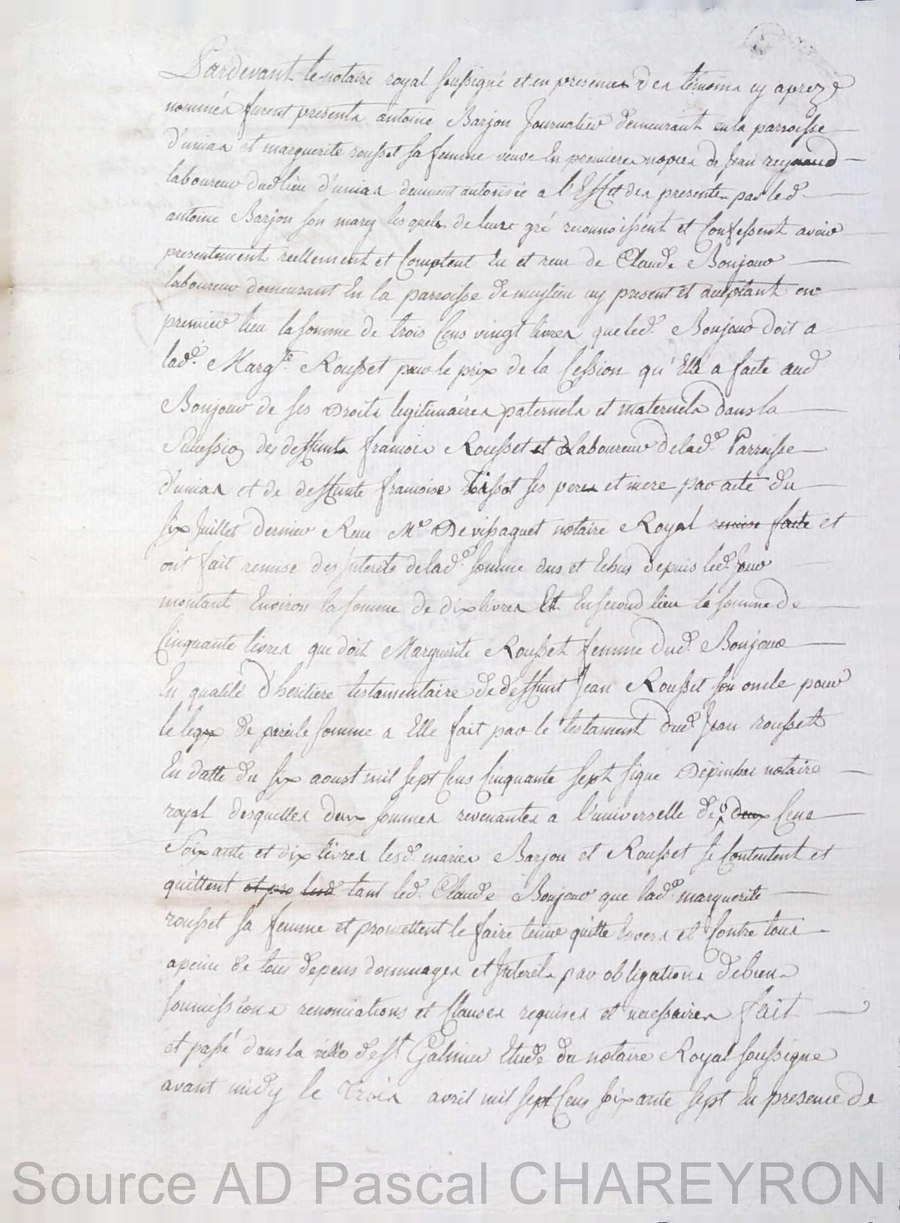 Pardevant le notaire royal soussigné et en presence des témoins cy aprez
nommés furent presents antoine Barjon Journalier demeurant en la parroisse
d'unias et marguerite rousset sa femme veuve en premieres nopces de Jean reynaud
laboureur dud lieu d'unias deument autorisée a l'Effet des presentes par led.
antoine Barjon son mary lesquels de leurs gré reconnoissent et Confessent avoir
presentement reellement et Comptent Eu et receu de Claude Bonjour
laboureur demeurant En la parroisse de cy present et acceptant en
premier lieu la somme de trois Cens vingt livres que led. Bonjour doit a
lad. Margte Rousset pour le prix de la Cession qu'Elle a faite aud
Bonjour de ses Droits legitimaires paternels et maternels dans la
Succession des deffunts francois Rousset Laboureur de lad. Parroisse
d'unias et de deffunte francoise Tissot ses pere et mere par acte du
six Juillet dernier Receu Me notaire Royal remise faite et
ont fait remise des Interets de lad. somme dus et Echus depuis led. jour
montant Environ la somme de dix livres Et En second lieu la somme de
Cinquante livres que doit Marguerite Rousset femme dud. Bonjour
En qualité D'heritiere testamentaire de deffunt Jean Rousset son oncle pour
le legs de pareile somme a Elle fait par le testament dud. Jean rousset
En datte du six aoust mil sept Cens Cinquante sept signé notaire
royal desquelles deux sommes revenantes a l'universelle de deux Cens
Soixante et dix livres lesd. mariés Barjon et Rousset se Contentent et
quittent et tant led. Claude Bonjour que lad. marguerite
rousset sa femme et promettent le faire tenir quitte Envers et Contre tous
a peine de tous depens dommages et Interets par obligations de biens
soumissions renonciations et Clauses requises et necessaires fait
et passé dans la ville de st Galmier Etude du notaire Royal soussigne
avant midy le trois avril mil sept Cens soixante sept En presence de
Source AD Pascal CHAREYRON